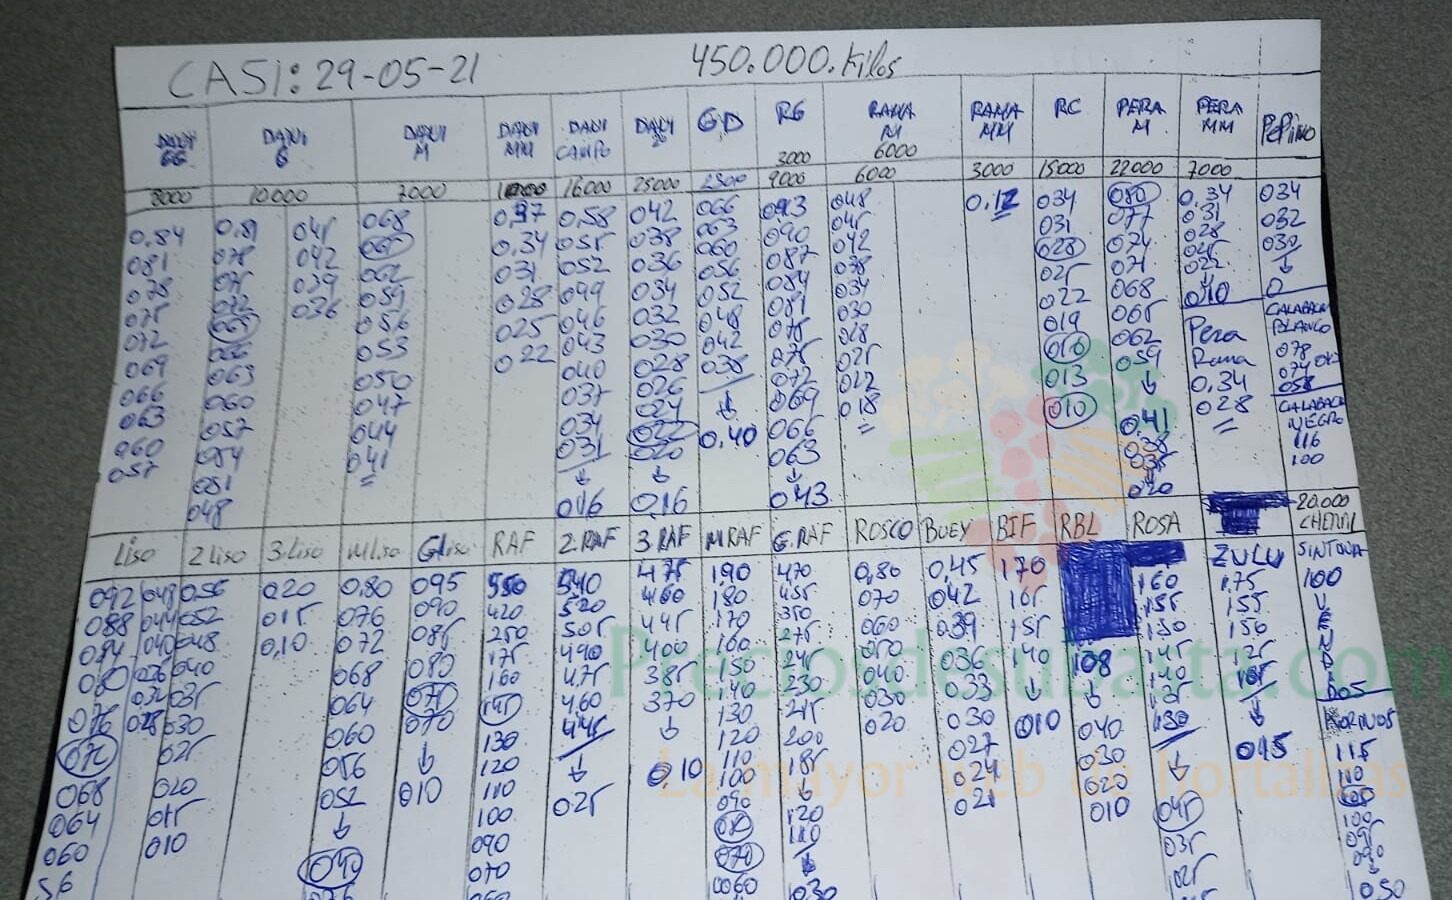 CASI: 29-05-21 450.000.Kilos
DANI GG DANI G DANI M DANI MM DANI CAMPO DANI GD RG RAMA M RAMA MM RC PERA M PERA MM PEPINO
3000 6000
8000 10000 7000 16000 25000 2500 9000 6000 3000 15000 22000 7000
0,84 0,81 045 068 0,37 0,58 042 066 093 048 0,12 034 080 0,34 034
081 078 042 065 0,34 055 038 063 090 045 031 077 031 032
078 075 039 062 031 052 036 060 087 042 028 074 028 030
075 072 036 059 028 049 034 056 084 038 025 071 025
072 069 056 025 046 032 052 081 034 022 068 022 0
069 066 053 022 043 030 048 078 030 019 065 010
066 063 050 040 028 042 075 028 016 062 Pera
063 060 047 037 026 038 072 025 013 059 Rama
060 057 044 034 024 069 022 010 0,34
057 054 041 031 022 0,40 066 018 0,41 028
051 020 063 038
048 016 016 043 035
020
CALABACIN
BLANCO
078
074
058
CALABACIN
NEGRO
116
100
20.000
LISO 2 LISO 3.LISO M LISO G Liso RAF 2.RAF 3.RAF M RAF G.RAF ROSCO BUEY BIF RBL ROSA ZULU
092 048 056 020 0.80 095 540 475 190 470 0,80 0,45 170 160 1,75
088 044 052 015 076 090 420 520 460 180 455 070 042 165 155 155
084 040 048 0,10 072 085 250 505 445 170 350 060 039 155 150 150
080 036 040 068 080 175 490 400 160 275 050 036 140 108 145 125
076 034 035 064 075 160 475 385 150 245 040 033 135 105
072 028 030 060 070 145 4,60 370 140 230 030 030 010 040 130
068 025 056 130 445 130 215 020 027 030 015
064 020 052 010 120 0,10 120 200 024 020
060 015 110 025 110 185 021 010 045
56 010 100 100 035
090 090 120 025
070 080 110
070
0060 030
SINTONIA
100
V
E
N
D
I
DOS
115
110
100
095
090
050
Preciosdesubasta.com
La mayor web de hortalizas